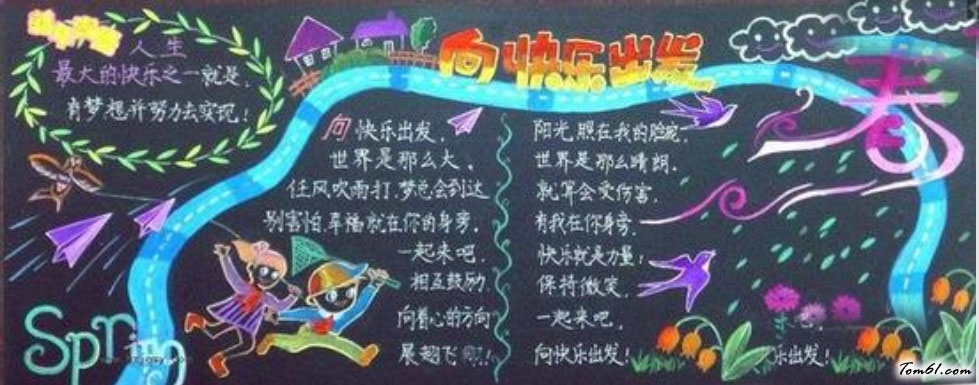 人生
最大的快乐之一就是,
有梦想并努力去实现!
向快乐出发
春
向快乐出发,
世界是那么大,
任风吹雨打,梦总会到达
别害怕,幸福就在你的身旁,
一起来吧,
相互鼓励,
向着心的方向
展翅飞翔!
阳光,照在我的脸庞,
世界是那么晴朗,
就算会受伤害,
有我在你身旁,
快乐就是力量!
保持微笑,
一起来吧,
向快乐出发!
吧,
乐出发!
Spring
Tom61.com